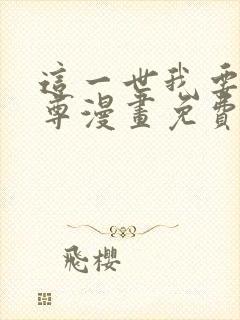 這一世我要
尊漫畫免費
飛櫻